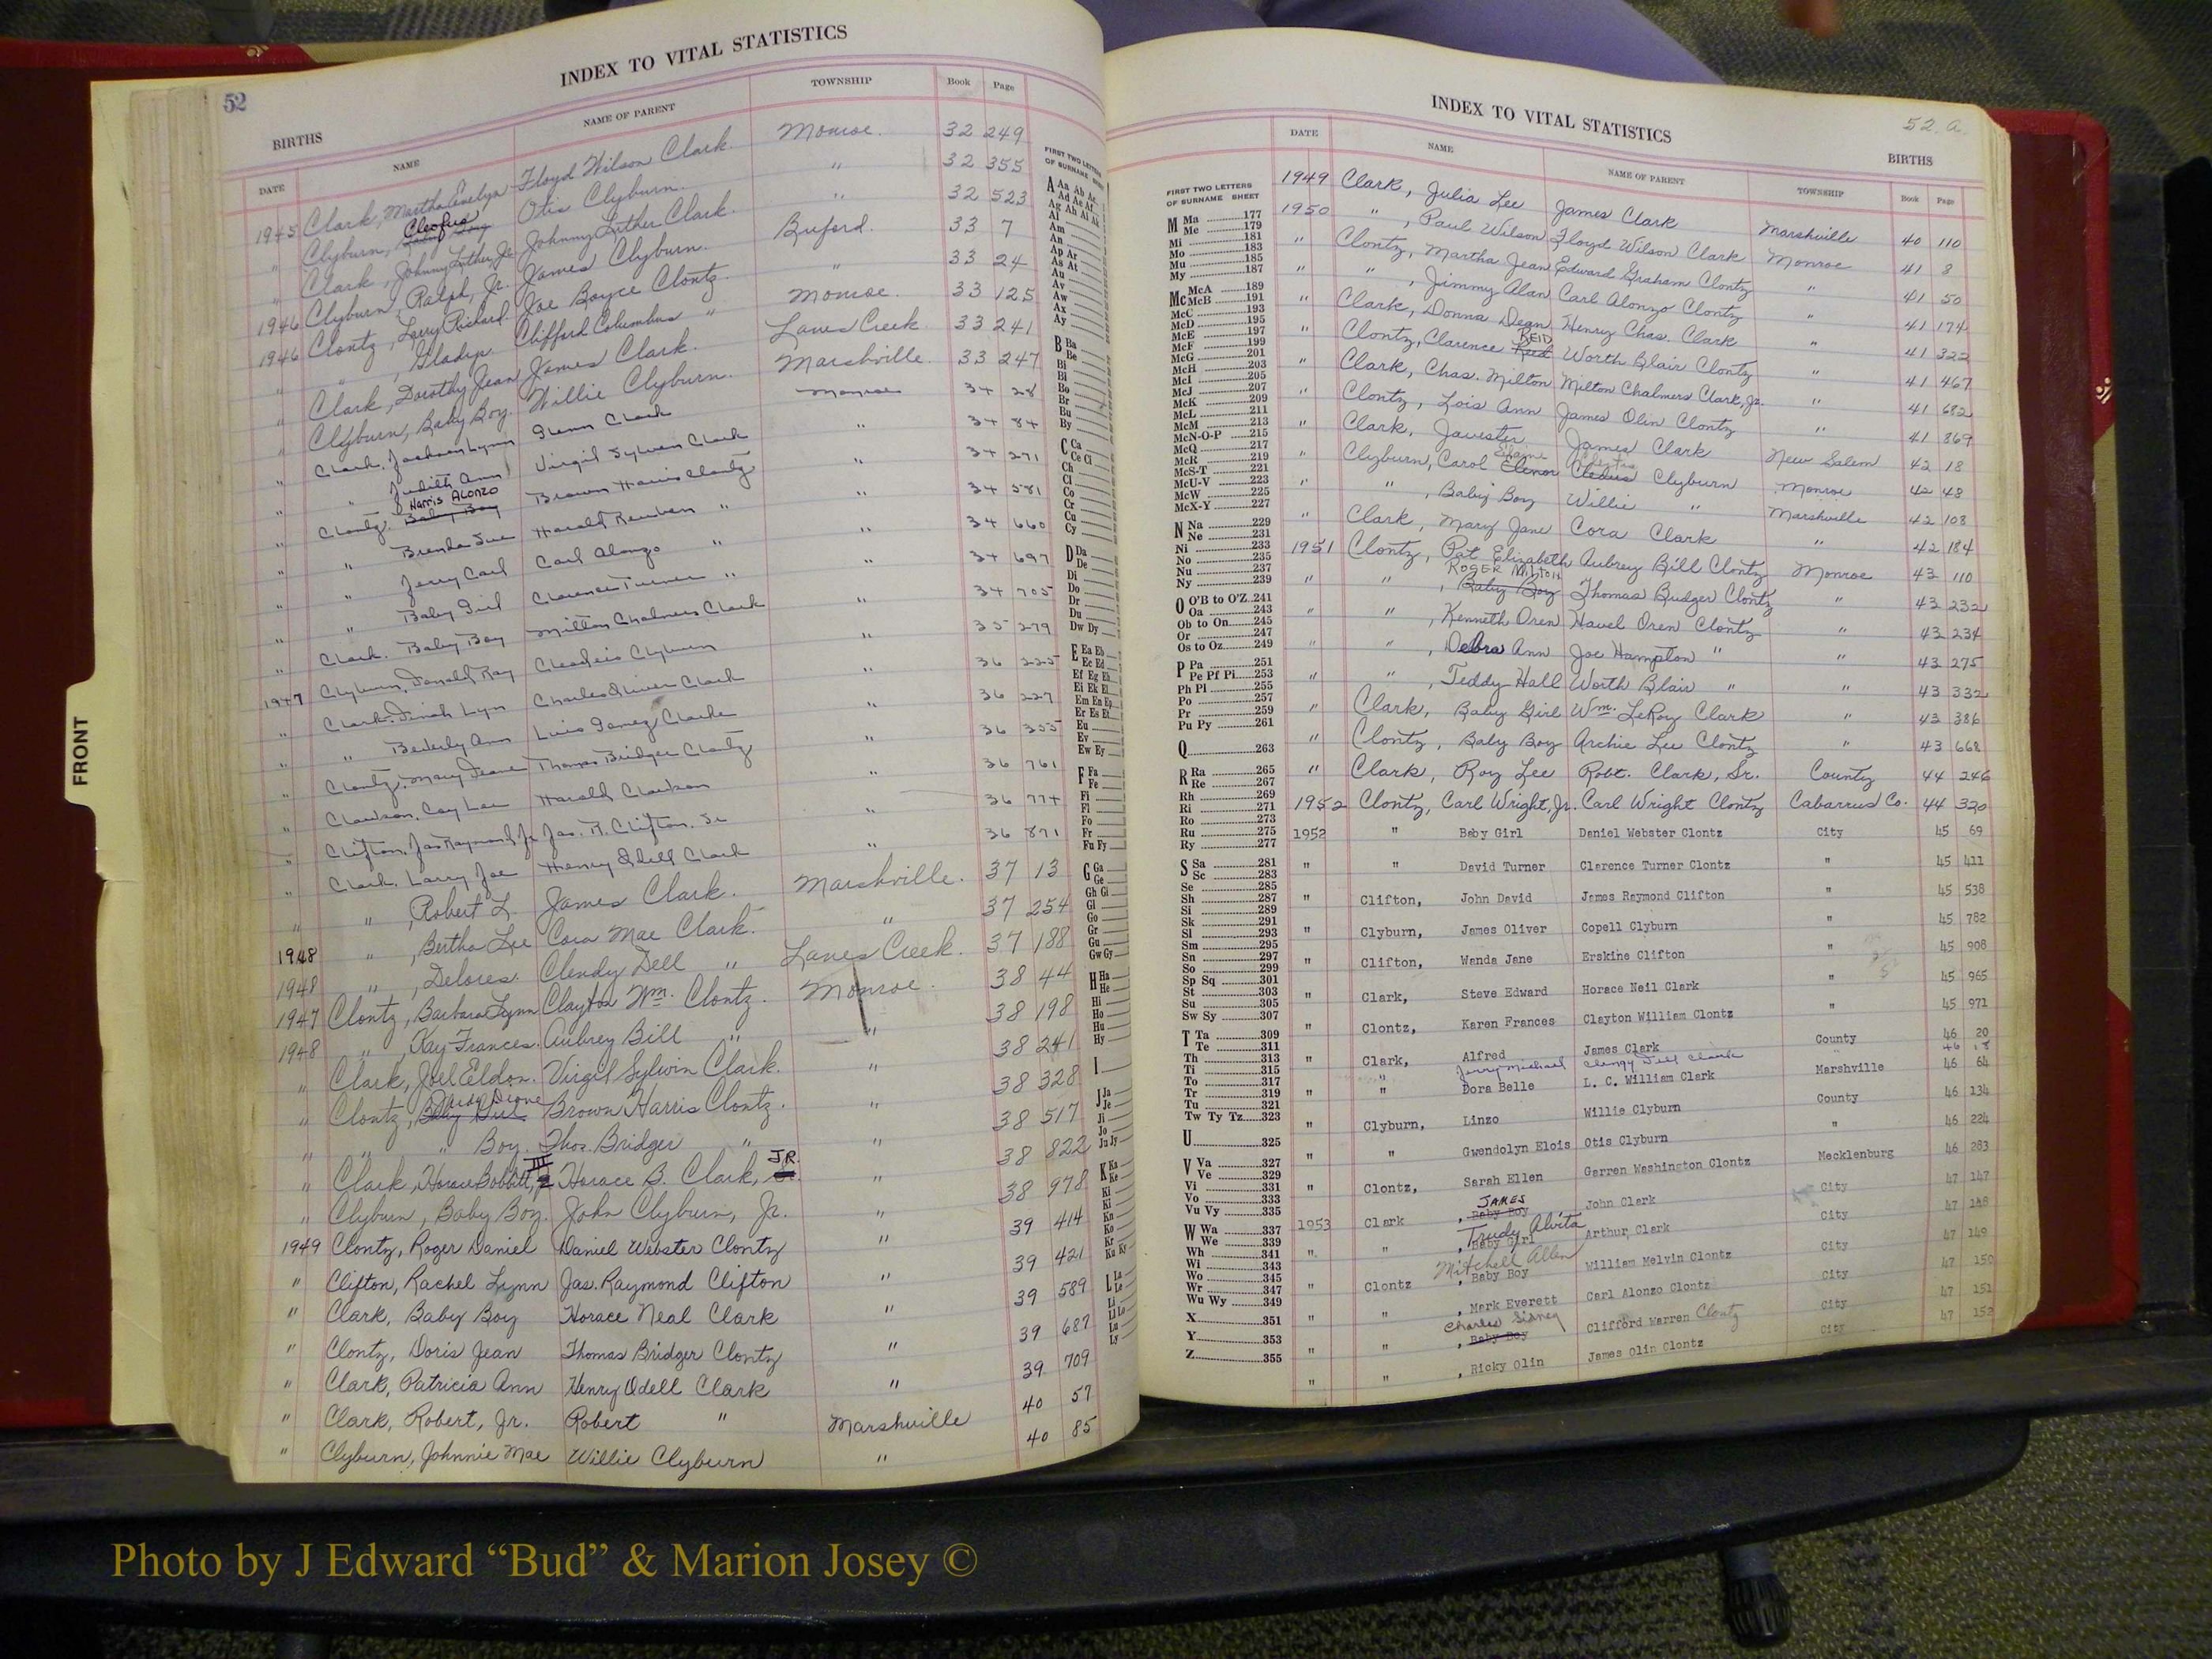 52
INDEX TO VITAL STATISTICS
BIRTHS
DATE NAME NAME OF PARENT TOWNSHIP Book Page
1945 Clark, Martha Evelyn Floyd Wilson Clark. Monroe. 32 249
" Clyburn, Cleofus Otis Clyburn. " 32 355
" Clark, Johnny Luther, Jr. Johnny Luther Clark. " 32 523
1946 Clyburn, Ralph, Jr. James Clyburn. Buford. 33 7
1946 Clontz, Larry Richard. Joe Boyce Clontz. " 33 24
" " , Gladys. Clifford Columbus " Monroe. 33 125
" Clark, Dorothy Jean James Clark. Lanes Creek. 33 241
" Clyburn, Baby Boy. Willie Clyburn. Marshville. 33 247
" Clark, Jackson Lynn Glenn Clark Monroe 34 28
" " Judith Ann Virgil Sylven Clark " 34 84
" Clontz, Harris Alonzo Baby Boy Brown Harris Clontz " 34 271
" " Brenda Sue Harold Reuben " " 34 581
" " Jerry Carl Carl Alonzo " " 34 660
" " Baby Girl Clarence Turner " " 34 697
" Clark, Baby Boy Milton Chalmers Clark " 34 705
1947 Clyburn, Donald Ray Clyburn " 35 279
" Clark, Dinah Lyn Charles Oliver Clark " 36 225
" " Beverly Ann Luis Gamez Clarke " 36 227
" Clontz, Mary Jeane Thomas Bridger Clontz " 36 355
" Clawson, Cay Lee Harold Clawson " 36 761
" Clifton, Jas Raymond, Jr Jas. R. Clifton, Sr " 36 774
" Clark, Larry Joe Henry Odell Clark " 36 871
" " , Robert L. James Clark. Marshville. 37 13
1948 " , Bertha Lee Cora Mae Clark. " 37 254
1948 " , Delores. Clendy Dell " Lanes Creek. 37 188
1947 Clontz, Barbara Lynn Clayton Wm. Clontz. Monroe. 38 44
1948 " , Kay Frances. Aubrey Bill " " 38 198
" Clark, Joel Eldon. Virgil Sylvin Clark. " 38 241
" Clontz, Baby Girl Brown Harris Clontz. " 38 328
" " " Boy. Thos. Bridger " " 38 517
" Clark, Horace Bobbitt, III Horace B. Clark, JR. " 38 822
" Clyburn, Baby Boy. John Clyburn, Jr. " 38 978
1949 Clontz, Roger Daniel Daniel Webster Clontz " 39 414
" Clifton, Rachel Lynn Jas. Raymond Clifton " 39 421
" Clark, Baby Boy Horace Neal Clark " 39 589
" Clontz, Doris Jean Thomas Bridger Clontz " 39 687
" Clark, Patricia Ann Henry Odell Clark " 39 709
" Clark, Robert, Jr. Robert " Marshville 40 57
" Clyburn, Johnnie Mae Willie Clyburn " 40 85
FIRST TWO LETTERS
OF SURNAME
A Aa Ab Ac
Ad Ae Af
Ag Ah Ai Ak
Al
Am
An
Ap Ar
As At
Au
Av
Aw
Ax
Ay
B Ba
Be
Bi
Bl
Bo
Br
Bu
By
C Ca
Ce Ci
Ch
Cl
Co
Cr
Cu
Cy
D Da
De
Di
Do
Dr
Du
Dw Dy
E Ea Eb
Ec Ed
Ef Eg Eh
Ei Ek El
Em En Ep
Er Es Et
Eu
Ev
Ew Ey
F Fa
Fe
Fi
Fl
Fo
Fr
Fu Fy
G Ga
Ge
Gh Gi
Gl
Go
Gr
Gu
Gw Gy
H Ha
He
Hi
Ho
Hu
Hy
I
J Ja
Je
Ji
Jo
Ju Jy
K Ka
Ke
Ki
Kl
Kn
Ko
Kr
Ku Ky
L La
Le
Li
Ll Lo
Lu
Ly
FRONT
52. a.
INDEX TO VITAL STATISTICS
BIRTHS
DATE NAME NAME OF PARENT TOWNSHIP Book Page
1949 Clark, Julia Lee James Clark Marshville 40 110
1950 " , Paul Wilson Floyd Wilson Clark Monroe 41 8
" Clontz, Martha Jean Edward Graham Clontz " 41 50
" " , Jimmy Alan Carl Alonzo Clontz " 41 174
" Clark, Donna Dean Henry Chas. Clark " 41 322
" Clontz, Clarence Reed REID Worth Blair Clontz " 41 467
" Clark, Chas. Milton Milton Chalmers Clark, Jr. " 41 682
" Clontz, Lois Ann James Olin Clontz " 41 869
" Clark, Javester James Clark New Salem 42 18
" Clyburn, Carol Elenor Elaine Cledus Clyburn Monroe 42 48
" " , Baby Boy Willie " Marshville 42 108
" Clark, Mary Jane Cora Clark " 42 184
1951 Clontz, Pat Elizabeth Aubrey Bill Clontz Monroe 43 110
" " , Baby Boy ROGER MILTON Thomas Budger Clontz " 43 232
" " , Kenneth Oren Havel Oren Clontz " 43 234
" " , Debra Ann Joe Hampton " " 43 275
" " , Teddy Hall Worth Blair " " 43 332
" Clark, Baby Girl Wm. LeRoy Clark " 43 386
" Clontz, Baby Boy Archie Lee Clontz " 43 668
" Clark, Roy Lee Robt. Clark, Sr. County 44 246
1952 Clontz, Carl Wright, Jr. Carl Wright Clontz Cabarrus Co. 44 320
1952 " Baby Girl Daniel Webster Clontz City 45 69
" " David Turner Clarence Turner Clontz " 45 411
" Clifton, John David James Raymond Clifton " 45 538
" Clyburn, James Oliver Copell Clyburn " 45 782
" Clifton, Wanda Jane Erskine Clifton " 45 908
" Clark, Steve Edward Horace Neil Clark " 45 965
" Clontz, Karen Frances Clayton William Clontz " 45 971
" Clark, Alfred James Clark County 46 20
" Jerry Michael Clengy Dell Clark " 46 18
" " Dora Belle L. C. William Clark Marshville 46 64
" Clyburn, Linzo Willie Clyburn County 46 134
" " Gwendolyn Elois Otis Clyburn " 46 224
" Clontz, Sarah Ellen Garren Washington Clontz Mecklenburg 46 283
1953 Clark , Baby Boy JAMES John Clark City 47 147
" " , Baby Girl Trudy Alvita Arthur Clark City 47 148
" Clontz , Baby Boy Mitchell Allen William Melvin Clontz City 47 149
" " , Mark Everett Carl Alonzo Clontz City 47 150
" " , Baby Boy Charles Sidney Clifford Warren Clontz City 47 151
" " , Ricky Olin James Olin Clontz City 47 152
FIRST TWO LETTERS
OF SURNAME SHEET
M Ma 177
Me 179
Mi 181
Mo 183
Mu 185
My 187
Mc McA 189
McB 191
McC 193
McD 195
McE 197
McF 199
McG 201
McH 203
McI 205
McJ 207
McK 209
McL 211
McM 213
McN-O-P 215
McQ 217
McR 219
McS-T 221
McU-V 223
McW 225
McX-Y 227
N Na 229
Ne 231
Ni 233
No 235
Nu 237
Ny 239
O O'B to O'Z 241
Oa 243
Ob to On 245
Or 247
Os to Oz 249
P Pa 251
Pe Pf Pi 253
Ph Pl 255
Po 257
Pr 259
Pu Py 261
Q 263
R Ra 265
Re 267
Rh 269
Ri 271
Ro 273
Ru 275
Ry 277
S Sa 281
Sc 283
Se 285
Sh 287
Si 289
Sk 291
Sl 293
Sm 295
Sn 297
So 299
Sp Sq 301
St 303
Su 305
Sw Sy 307
T Ta 309
Te 311
Th 313
Ti 315
To 317
Tr 319
Tu 321
Tw Ty Tz 323
U 325
V Va 327
Ve 329
Vi 331
Vo 333
Vu Vy 335
W Wa 337
We 339
Wh 341
Wi 343
Wo 345
Wr 347
Wu Wy 349
X 351
Y 353
Z 355
Photo by J Edward “Bud” & Marion Josey ©